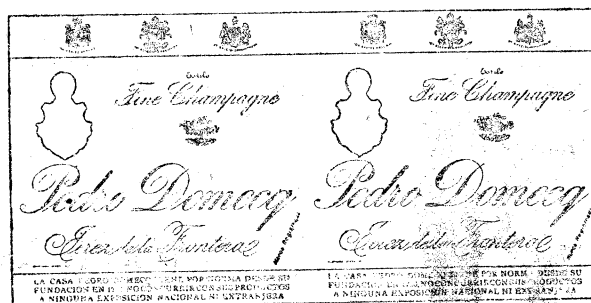 Estilo
Fine Champagne
Pedro Domecq
Jerez de la Frontera
LA CASA PEDRO DOMECQ TIENE POR NORMA DESDE SU
FUNDACION EN NO CONCURRIR CON SUS PRODUCTOS
A NINGUNA EXPOSICION NACIONAL NI EXTRANJERA
Estilo
Fine Champagne
Pedro Domecq
Jerez de la Frontera
LA CASA PEDRO DOMECQ TIENE POR NORMA DESDE SU
FUNDACION EN NO CONCURRIR CON SUS PRODUCTOS
A NINGUNA EXPOSICION NACIONAL NI EXTRANJERA